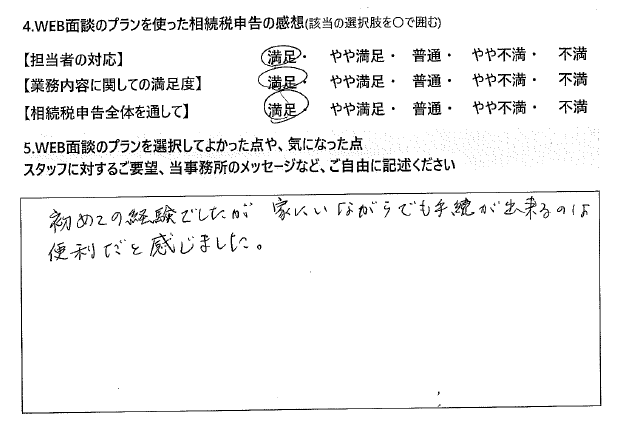 4.WEB面談のプランを使った相続税申告の感想(該当の選択肢を〇で囲む)
【担当者の対応】 満足・ やや満足・ 普通・ やや不満・ 不満
【業務内容に関しての満足度】 満足・ やや満足・ 普通・ やや不満・ 不満
【相続税申告全体を通して】 満足・ やや満足・ 普通・ やや不満・ 不満
5.WEB面談のプランを選択してよかった点や、気になった点
スタッフに対するご要望、当事務所のメッセージなど、ご自由に記述ください
初めての経験でしたが 家にいながらでも手続が出来るのは
便利だと感じました。